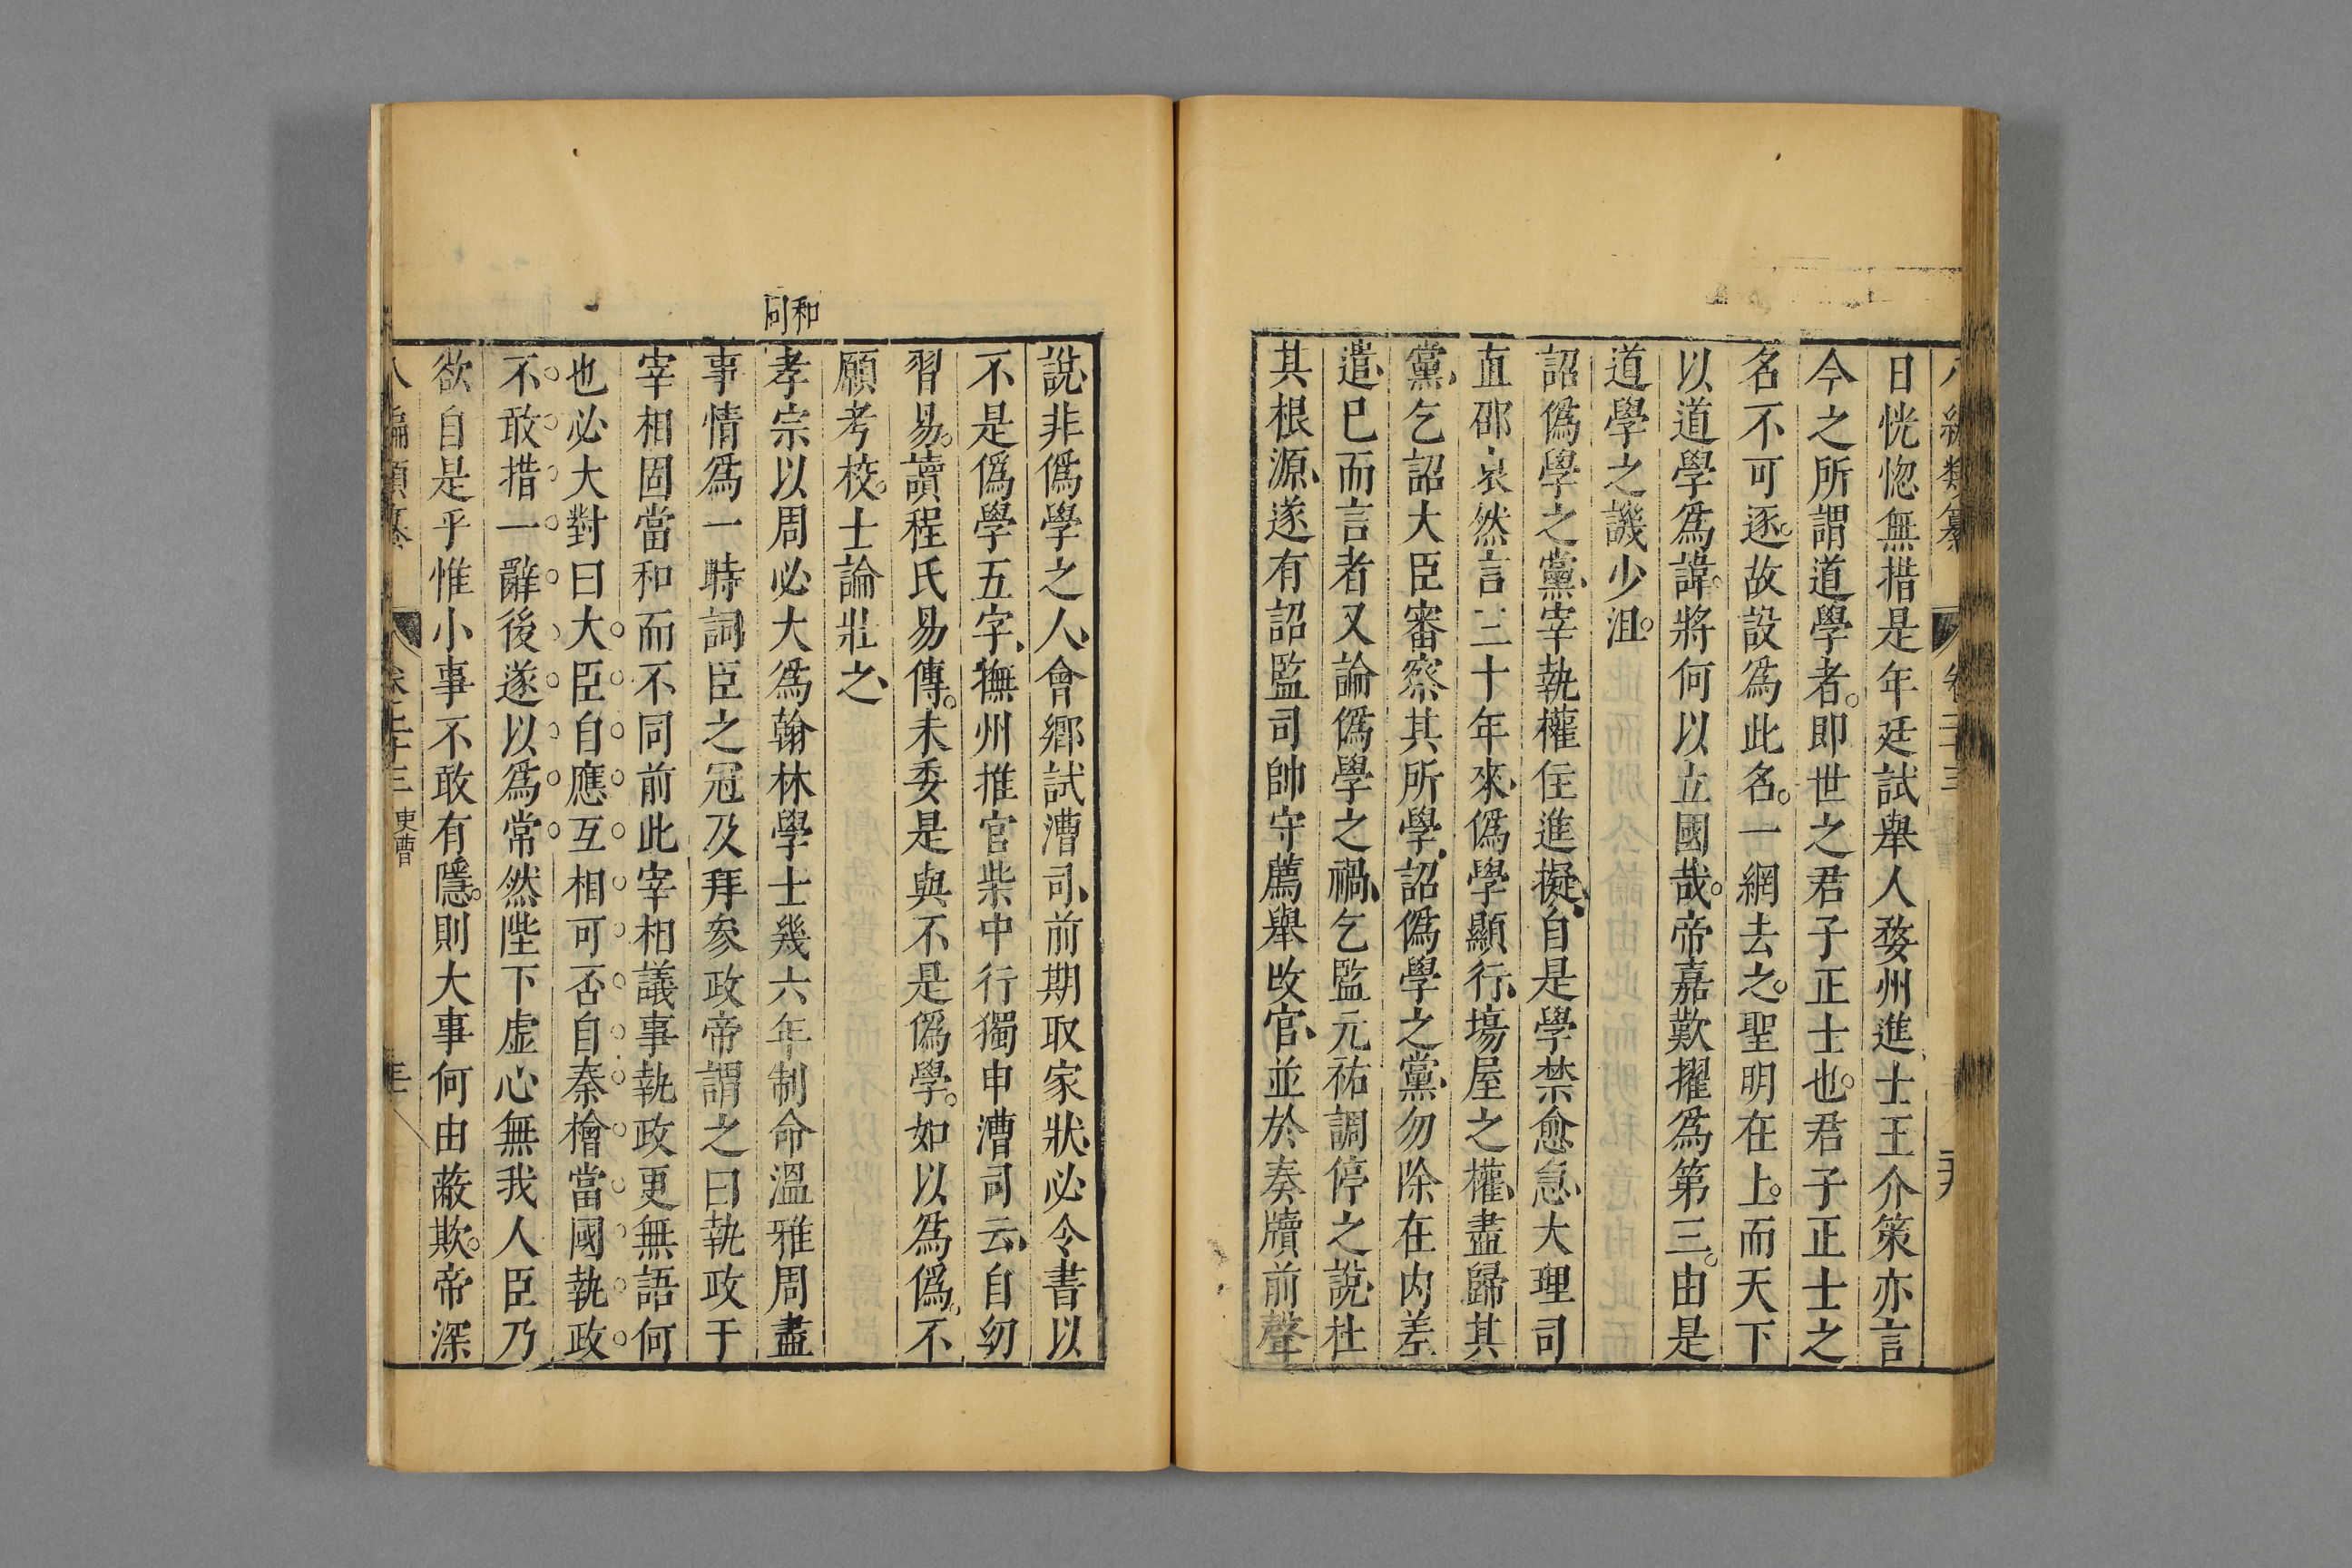 日恍惚無措是年廷試舉人婺州進士王介策亦言
今之所謂道學者即世之君子正士也君子正士之
名不可逐故設爲此名一網去之聖明在上而天下
以道學爲諱將何以立國哉帝嘉歎擢爲第三由是
道學之譏少沮
詔僞學之黨宰執權住進擬自是學禁愈急大理司
直邵裒然言三十年來僞學顯行塲屋之權盡歸其
黨乞詔大臣審察其所學詔僞學之黨勿除在内差
遣已而言者又論僞學之禍乞監元祐調停之說杜
其根源遂有詔監司帥守薦舉改官並於奏牘前聲
說非僞學之人會鄉試漕司前期取家狀必令書以
不是僞學五字撫州推官柴中行獨申漕司云自幼
習易讀程氏易傳未委是與不是僞學如以爲僞不
願考校士論壯之
和同
孝宗以周必大爲翰林學士幾六年制命溫雅周盡
事情爲一時詞臣之冠及拜叅政帝謂之曰執政于
宰相固當和而不同前此宰相議事執政更無語何
也必大對曰大臣自應互相可否自秦檜當國執政
不敢措一辭後遂以爲常然陛下虛心無我人臣乃
欲自是乎惟小事不敢有隱則大事何由蔽欺帝深
八編類纂 卷三十三 吏曹